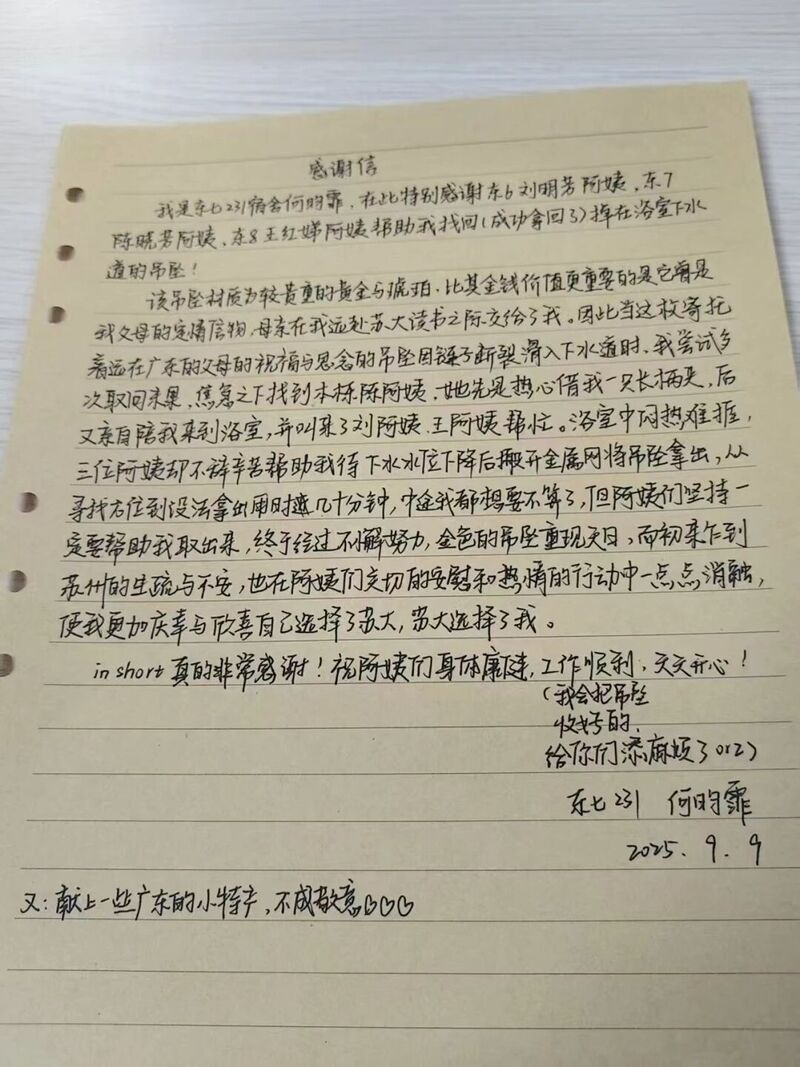 感谢信
我是东七231宿舍何昀霏，在此特别感谢东6刘明芳阿姨、东7
陈晓芳阿姨、东8王红娣阿姨帮助我找回(成功拿回了)掉在浴室下水
道的吊坠！
该吊坠材质为较贵重的黄金与琥珀，比其金钱价值更重要的是它曾是
我父母的定情信物，母亲在我远赴苏大读书之际交给了我。因此当这枚寄托
着远在广东的父母的祝福与思念的吊坠因链子断裂滑入下水道时，我尝试多
次取回未果，焦急之下找到本栋陈阿姨，她先是热心借我一只长柄夹，后
又亲自陪我来到浴室，并叫来了刘阿姨、王阿姨帮忙。浴室中闷热难捱，
三位阿姨却不辞辛苦帮助我待下水水位下降后搬开金属网将吊坠拿出，从
寻找方位到设法拿出用时逾几十分钟，中途我都想要不算了，但阿姨们坚持一
定要帮助我取出来，终于经过不懈努力，金色的吊坠重现天日，而初来乍到
苏州的生疏与不安，也在阿姨们亲切的安慰和热情的行动中一点点消融，
使我更加庆幸与欣喜自己选择了苏大，苏大选择了我。
in short 真的非常感谢！祝阿姨们身体康健，工作顺利，天天开心！
(我会把吊坠
收好的，
给你们添麻烦了orz)
东七231 何昀霏
2025.9.9
又：献上一些广东的小特产，不成敬意♡♡♡